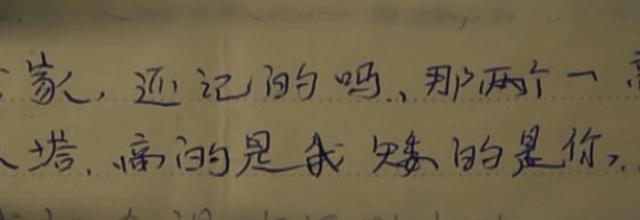 家人,还记的吗,那两个一高
塔,高的是我 矮的是你,